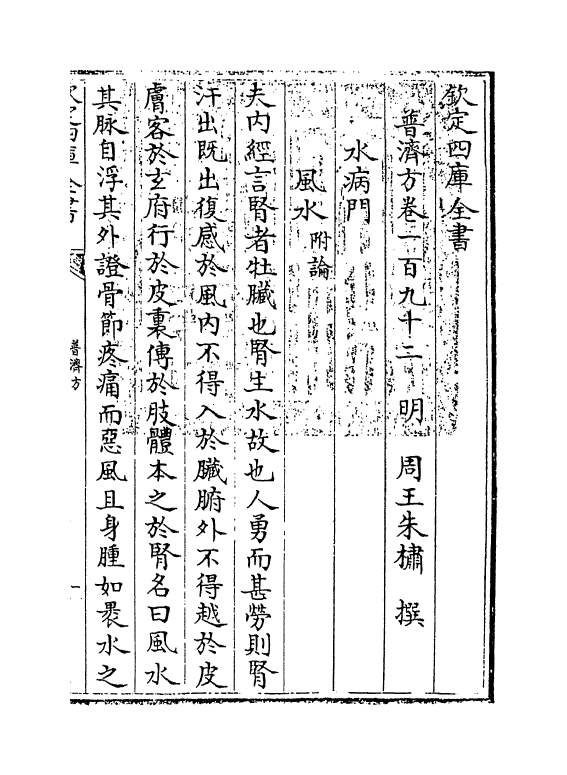 欽定四庫全書
普濟方卷一百九十二　明　周王朱橚　撰
水病門
風水附論
夫内經言腎者牡臟也腎生水故也人勇而甚勞則腎
汗出既出復感於風内不得入於臟腑外不得越於皮
膚客於玄府行於皮裏傳於肢體本之於腎名曰風水
其脉自浮其外證骨節疼痛而惡風且身腫如裹水之
欽定四庫全書
普濟方
一